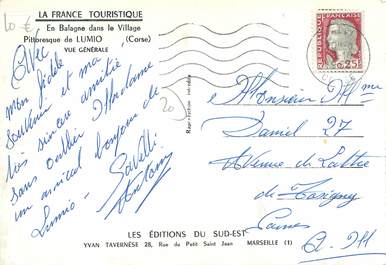 10 €
LA FRANCE TOURISTIQUE
En Balagne dans le Village
Pittoresque de LUMIO (Corse)
VUE GÉNÉRALE
Avec
mon fidèle
souvenir et ma
très sincère amitié
sans oublier Madame
un amical bonjour de
Lumio -
Savelli
Antoine
20
Reproduction interdite
REPUBLIQUE FRANÇAISE
0,25
Monsieur
Daniel 27
Avenue de Lattre
de Tassigny
Cannes
A. M
LES ÉDITIONS DU SUD-EST
YVAN TAVERNÈSE 28, Rue du Petit Saint Jean MARSEILLE (1)